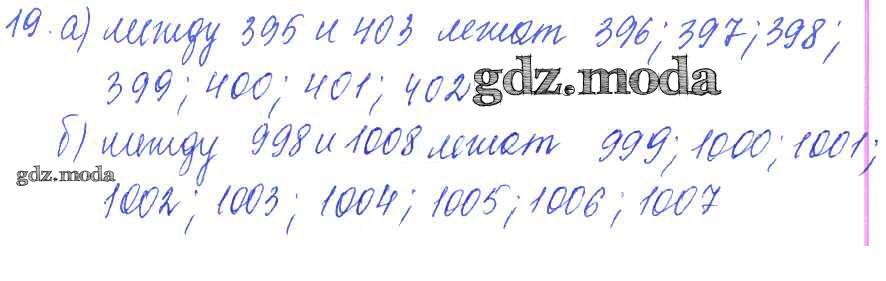 19. а) между 395 и 403 лежат 396; 397; 398;
399; 400; 401; 402 gdz.moda
б) между 998 и 1008 лежат 999; 1000; 1001;
gdz.moda
1002; 1003; 1004; 1005; 1006; 1007